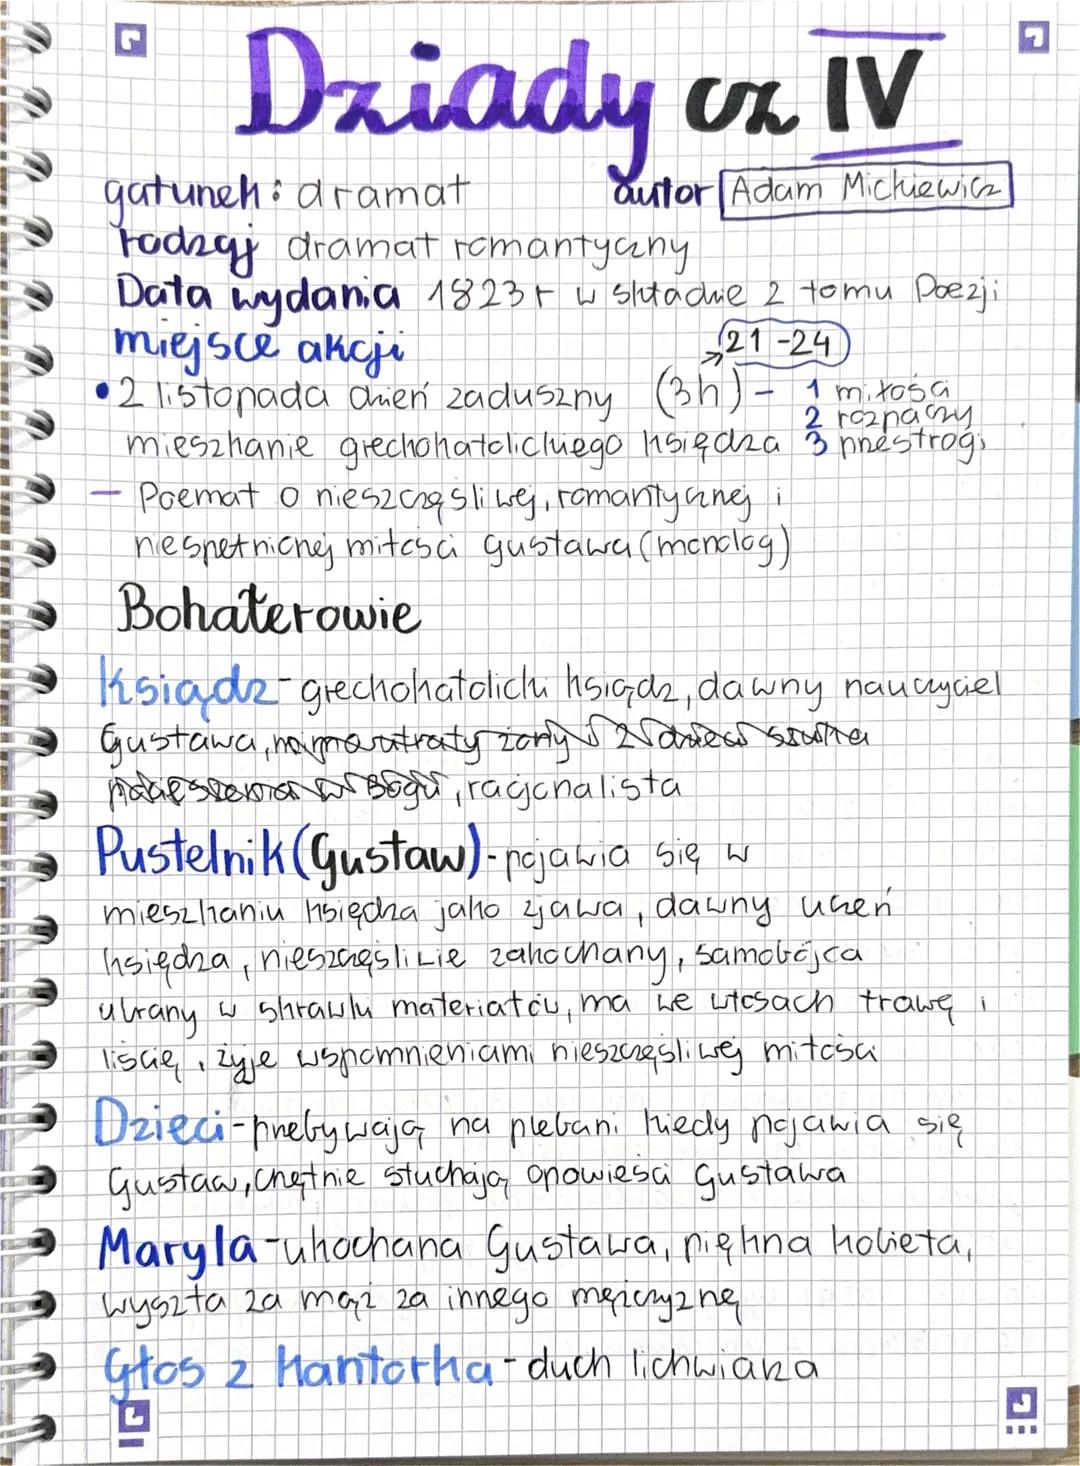 Dziady cz IV
gatunek: dramat autor Adam Mickiewicz
rodzaj dramat romantyczny
Data wydania 1823r w składzie 2 tomu Poezji
miejsce akcji 21-24
• 2 listopada dzień zaduszny (3h) - 1 miłości
2 rozpaczy
mieszkanie grechokatolickiego księdza 3 przestrogi
— Poemat o nieszczęśliwej, romantycznej i
niespełnionej miłości Gustawa (monolog)
Bohaterowie
Ksiądz - grechokatolicki ksiądz, dawny nauczyciel
Gustawa, racjonalista
Pustelnik (Gustaw) - pojawia się w
mieszkaniu księdza jako zjawa, dawny uczeń
księdza, nieszczęśliwie zakochany, samobójca
ubrany w skrawki materiałów, ma we włosach trawę i
liście, żyje wspomnieniami nieszczęśliwej miłości
Dzieci - przebywają na plebani kiedy pojawia się
Gustaw, chętnie słuchają opowieści Gustawa
Maryla - ukochana Gustawa, piękna kobieta,
wyszła za mąż za innego mężczyznę
Głos z kantorka - duch lichwiarza